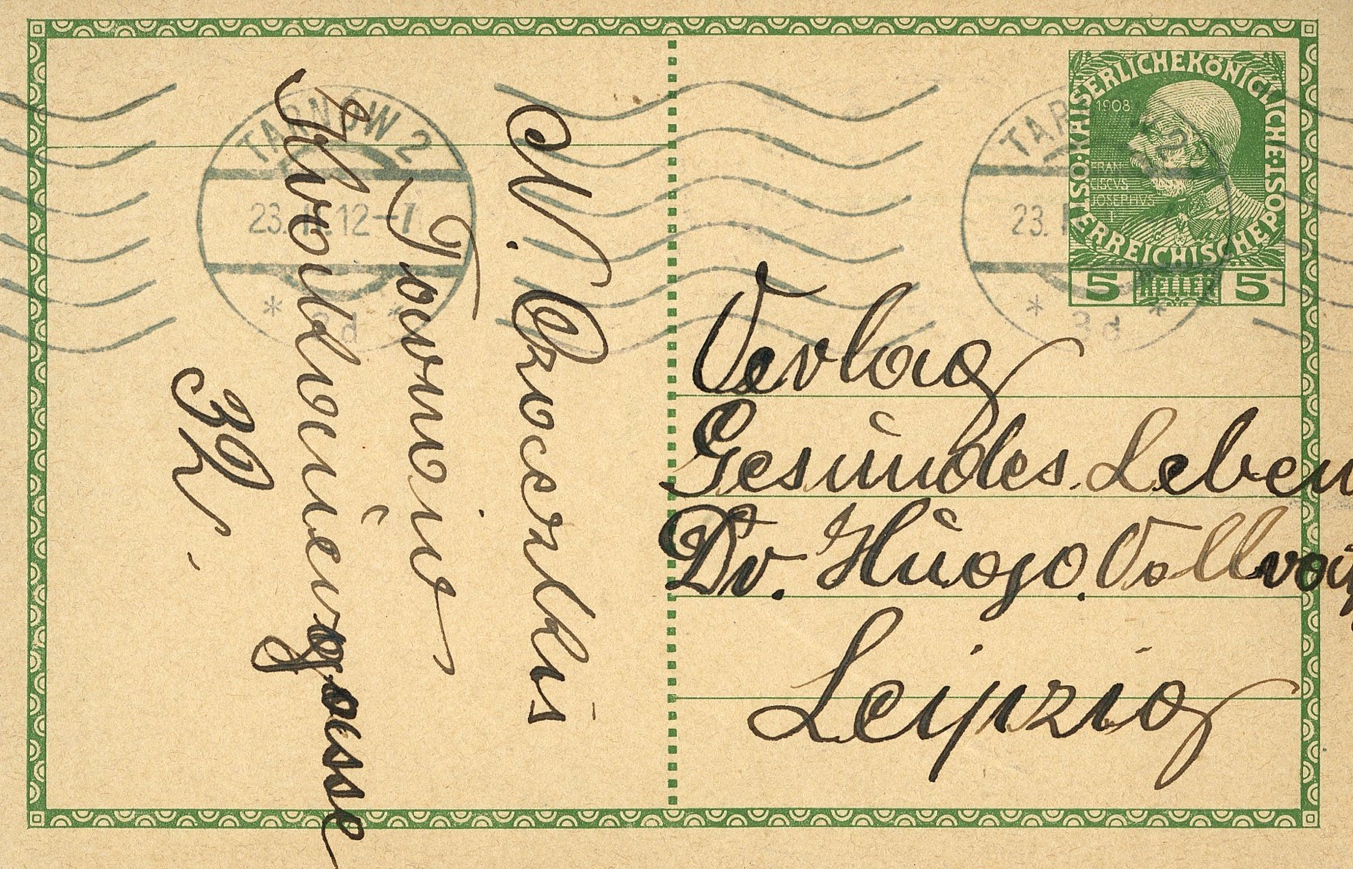 N. Czoczkis
Tarnów
Krakauergasse
32.
TARNÓW 2
23. II. 12-7
* 3d *
TAR
23.
* 3d *
KAISERLICHE KÖNIGLICHE ÖSTERREICHISCHE POST
1908
FRAN
CISCVS
JOSEPHVS
I
5 HELLER 5
Verlag
Gesundes Leben
Dr. Hugo Vollra
Leipzig